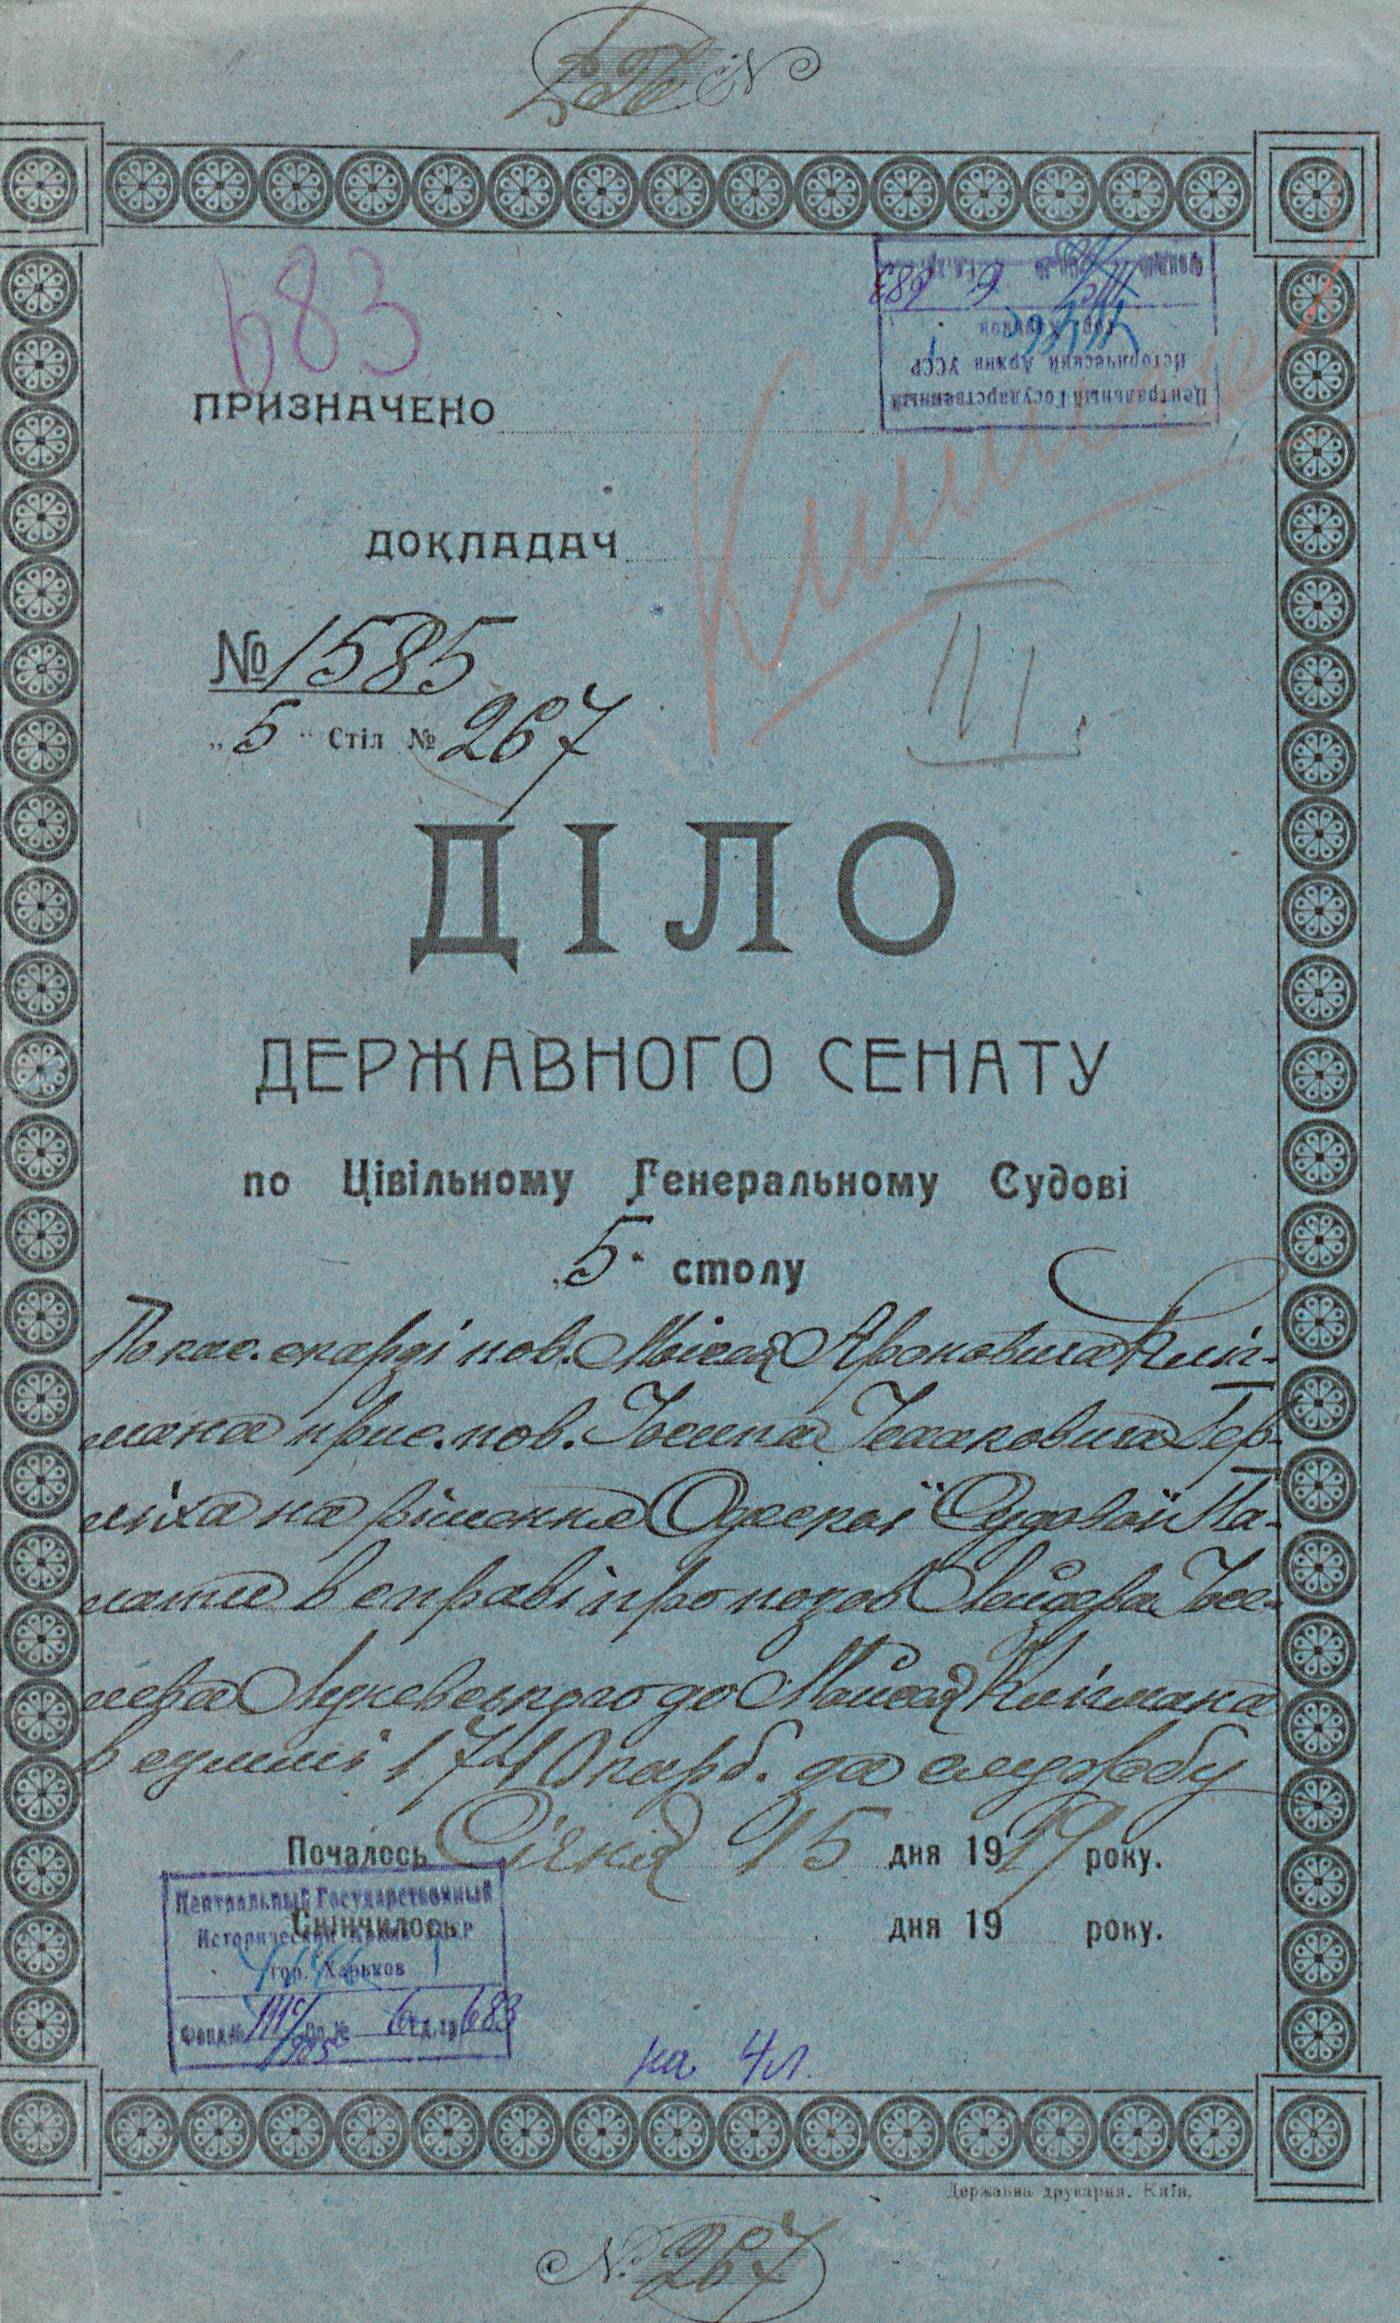 683
Центральный Государственный
Исторический Архив УССР
гор. Харьков
Фонд № оп. № 6 ед. хр. 683
ПРИЗНАЧЕНО
ДОКЛАДАЧ
№ 1585
III.
„5“ Стіл № 267
ДІЛО
ДЕРЖАВНОГО СЕНАТУ
по Цівільному Ґенеральному Судові
5 столу
По кас. скарзі пов. Мойсея Ароновича Кліг-
мана прис. пов. Іосипа Ісааковича Гер-
ліха на рішення Одеської Судової Па-
лати в справі про позов Лейзера Іос-
Лукевського до Мойсея Клігмана
в суммі 1740 карб. за службу
Почалось Січня 15 дня 1919 року.
Скінчилось дня 19 року.
Центральный Государственный
Исторический Архив УССР
гор. Харьков
Фонд № оп. № 6 ед. хр 683
на 4 л.
Державна друкарня. Київ.
№ 267